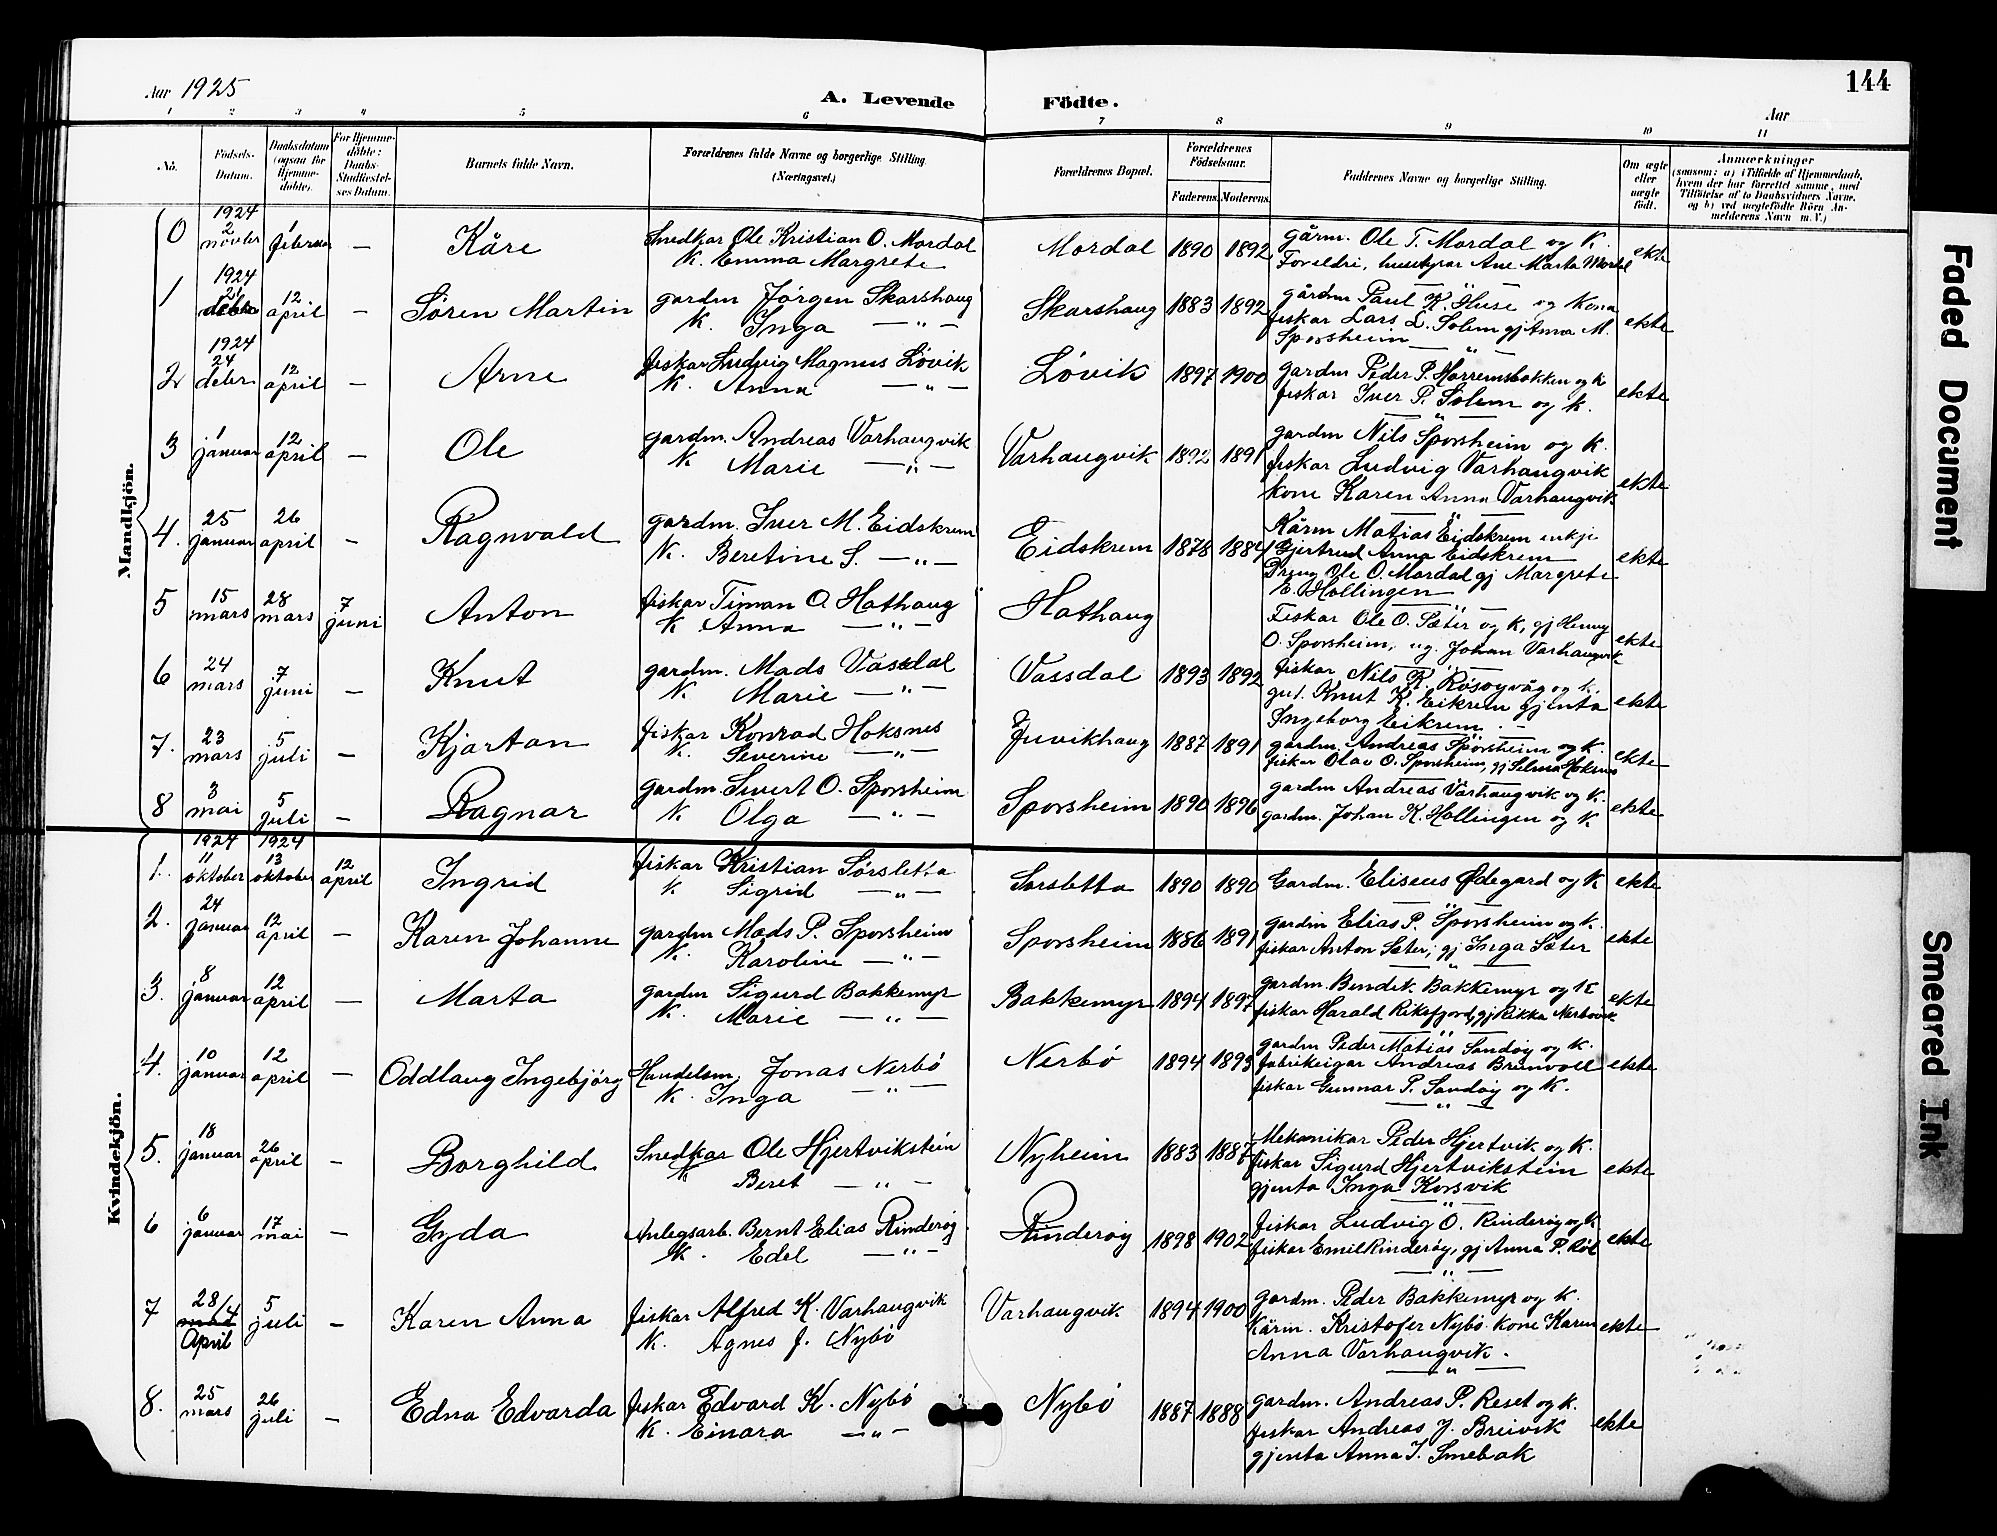 144
Aar 1925
A. Levende Födte.
Aar
1 2 3 4 5 6 7 8 9 10 11
No.
Födsels-Datum.
Daabsdatum (ogsaa for Hjemme-döbte).
For Hjemme-döbte: Daabs-Stadfæstel-ses Datum.
Barnets fulde Navn.
Forældrenes fulde Navne og borgerlige Stilling. (Næringsvei.)
Forældrenes Bopæl.
Forældrenes Födselsaar.
Faderens. Moderens.
Faddernes Navne og borgerlige Stilling.
Om ægte eller uægte födt.
Anmærkninger
(saasom: a) i Tilfælde af Hjemmedaab, hvem der har forrettet samme, med Tilföielse af to Daabsvidners Navne, og b) ved uægtefödte Börn An-melderens Navn m. V.)
Mandkjön.
0 1924 2 novbr 1 februar — Kåre Snedkar Ole Kristian O. Mordal Mordal 1890 1892 gårm. Ole T. Mordal og K. ekte
K. Emma Margrete Foreldri, husstyrar Ane Marta Mordal
1 1924 21 debr 12 april — Søren Martin gardm Jørgen Skarshaug Skarshaug 1883 1892 gårdm Paul K. Huse og Kona ekte
K. Inga —"— fiskar Lars L. Solem gj Anna M.
Sporsheim
2 1924 24 debr 12 april — Arne fiskar Ludvig Magnus Løvik Løvik 1897 1900 gardm Peder P. Harremsbakken og K ekte
K. Anna —"— fiskar Iver P. Solem og K.
3 1 januar 12 april — Ole gardm. Andreas Varhaugvik Varhaugvik 1892 1891 gardm Nils Sporsheim og K. ekte
K. Marie —"— fiskar Ludvig Varhaugvik
kone Karen Anna Varhaugvik
4. 25 januar 26 april — Ragnvald gardm. Iver M. Eidskrem Eidskrem 1878 1884 Kårm Matias Eidskrem enkje ekte
K. Beretine S. —"— Gjertrud Anna Eidskrem
Dreng Ole O. Mordal gj Margrete
E. Hollingen
5 15 mars 28 mars 7 juni Anton fiskar Timan O. Hathaug Hathaug Fiskar Ole O. Sæter og K, gj Henny ekte
K Anna —"— O. Sporsheim, ug. Johan Varhaugvik
6 24 mars 7 juni — Knut gardm. Mads Vassdal Vassdal 1893 1892 fiskar Nils K. Røsøyvåg og K. ekte
K. Marie —"— gut. Knut K. Eikrem gjenta
Ingeborg Eikrem
7. 23 mars 5 juli — Kjartan fiskar Konrad Hoksnes Juvikhaug 1887 1891 gardm. Andreas Sporsheim og K. ekte
K. Severine —"— fiskar Olav O. Sporsheim, gj Selma Hoksnes
8 3 mai 5 juli — Ragnar gardm. Sivert O. Sporsheim Sporsheim 1890 1896 gardm Andreas Varhaugvik og K. ekte
K. Olga —"— gardm. Johan K. Hollingen og K
Kvindekjön.
1. 1924 11 oktober 1924 13 oktober 12 april Ingrid fiskar Kristian Sørsletta Sørsletta 1890 1890 Gardm. Eliseus Ødegard og K ekte
K Sigrid —"—
2. 24 januar 12 april — Karen Johanne gardm Mads P. Sporsheim Sporsheim 1886 1891 gardm Elias P. Sporsheim og K. ekte
K. Karoline —"— fiskar Anton Sæter, gj Inga Sæter
3. 8 januar 12 april — Marta gardm Sigurd Bakkemyr Bakkemyr 1894 1897 gardm. Bendik Bakkemyr og K ekte
K. Marie —"— fiskar Harald Riksfjord, gj Rikka Nerbøvik
4. 10 januar 12 april — Oddlaug Ingebjørg Handelsm. Jonas Nerbö Nerbö 1894 1893 gardm Peder Matias Sandøy og K. ekte
K. Inga —"— fabrikeigar Andreas Brunvoll
fiskar Gunnar P. Sandøy og K.
5. 18 januar 26 april — Borghild Snedkar Ole Hjertvikstein Nyheim 1883 1887 Mekanikar Peder Hjertvik og K. ekte
K Beret —"— fiskar Sigurd Hjertvikstein
gjenta Inga Korsvik
6 6 januar 17 mai — Gyda Anlegsarb. Bernt Elias Rinderøy Rinderøy 1898 1902 fiskar Ludvig O. Rinderøy og K ekte
K. Edel —"— fiskar Emil Rinderøy, gj Anna P. Røl
7 28/4 April 5 juli — Karen Anna fiskar Alfred K. Varhaugvik Varhaugvik 1894 1900 gardm. Peder Bakkemyr og K. ekte
K. Agnes J. Nybö Kårm. Kristofer Nybö. kone Karen
Anna Varhaugvik.
8. 25 mars 26 juli — Edna Edvarda fiskar Edvard K. Nybö Nybö 1887 1888 gardm. Andreas P. Reset og K. ekte
K. Einara —"— fiskar Andreas J. Breivik
gjenta Anna I. Smebak
Faded Document
Smeared Ink